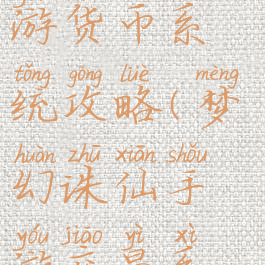 游货币系
tǒng gōng lüè mèng
统攻略(梦
huàn zhū xiān shǒu
幻诛仙手
yóu jiāo yì xì